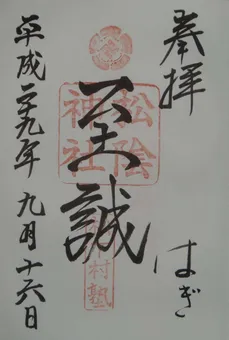 奉拝
はぎ
松陰
神社
至誠
村塾
平成二十九年九月十六日